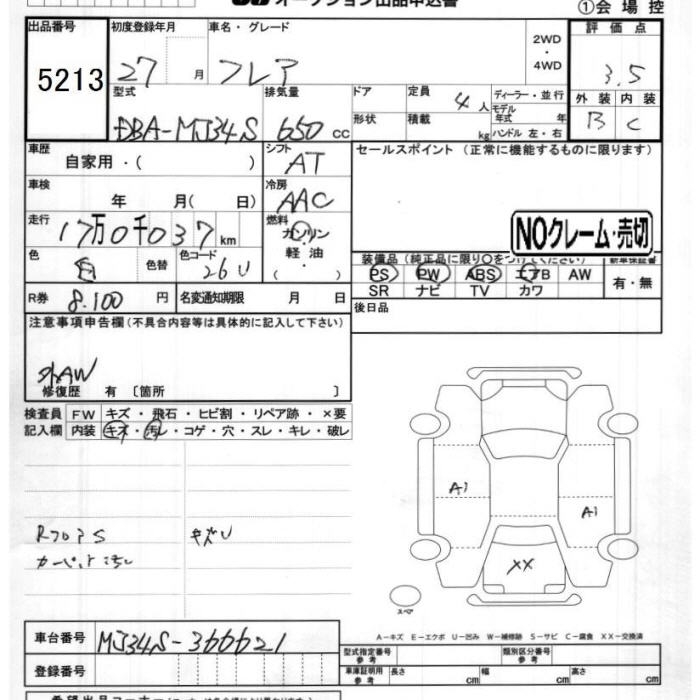 オークション出品申込書
①会場控
出品番号 初度登録年月 車名・グレード 評価点
5213 27 月 フレア 2WD・4WD 3.5
型式 排気量 ドア 定員 4人 ディーラー・並行 外装 内装
DBA-MJ34S 650 cc 形状 積載 kg モデル年式 年 ハンドル 左・右 B C
車歴 自家用・( ) シフト AT セールスポイント (正常に機能するものに限ります)
車検 年 月( 日) 冷房 AAC
走行 17万0千037km 燃料 ガソリン・軽油・( ) NOクレーム・売切
色 白 色替 色コード 26U 装備品 (純正品に限り○をつけてください) 新車保証書
PS PW ABS エアB AW 有・無
R券 8,100 円 名変通知期限 月 日 SR ナビ TV カワ
注意事項申告欄 (不具合内容等は具体的に記入して下さい) 後日品
外AW
修復歴 有 〔箇所 〕
検査員 FW キズ・飛石・ヒビ割・リペア跡・×要
記入欄 内装 キズ・汚レ・コゲ・穴・スレ・キレ・破レ
A1
A1
RフロアS キズU
カーペット汚レ
XX
スペア
A-キズ E-エクボ U-凹み W-補修跡 S-サビ C-腐食 XX-交換済
車台番号 MJ34S-366621
型式指定番号 参考 類別区分番号 参考
登録番号 車庫証明用 参考 長さ cm 幅 cm 高さ cm
希望出品コーナー